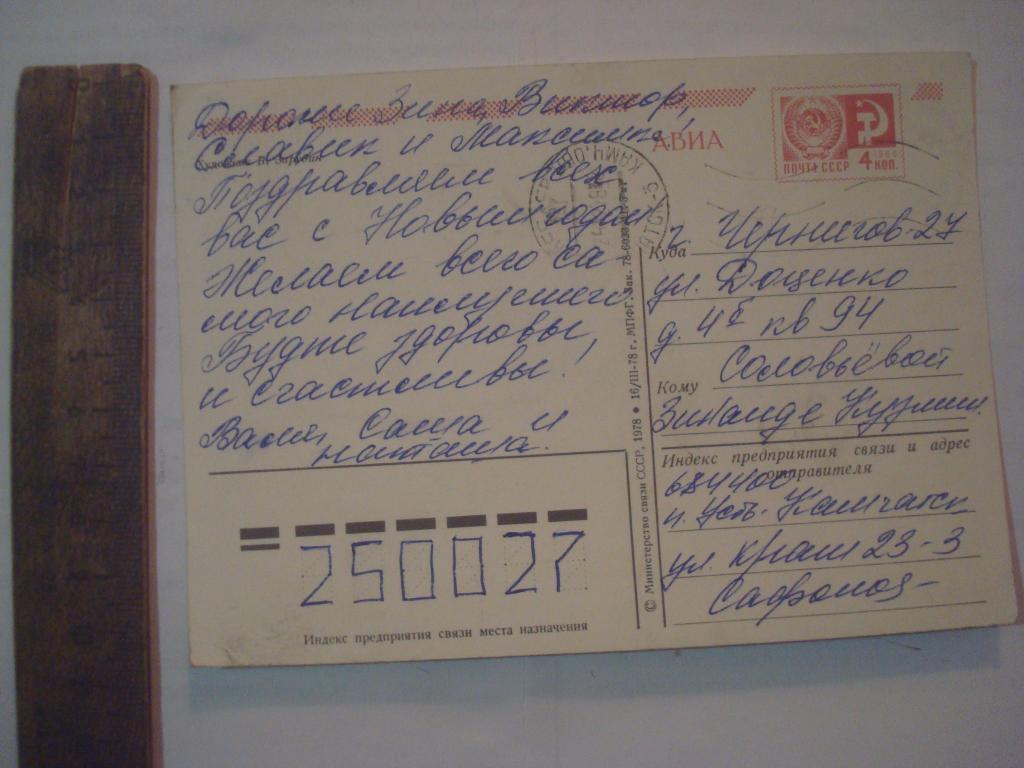 Дорогие Зина, Виктор,
Славик и Максимка!
Художник В. Зарубин
Поздравляем всех
вас с Новым годом
Желаем всего са-
мого наилучшего
Будте здоровы,
и счастливы!
Ваши, Саша и
Наташа.
АВИА
ПОЧТА СССР
4 КОП.
Куда г. Чернигов-27
ул. Доценко
д. 4б кв 94
Кому Соловьёвой
Зинаиде Кузмин.
Индекс предприятия связи и адрес
отправителя
684400
п. Усть-Камчатск
ул. Краш 23-3
© Министерство связи СССР, 1978 • 16/III-78 г. МПФГ. Зак. 78-
250027
Индекс предприятия связи места назначения